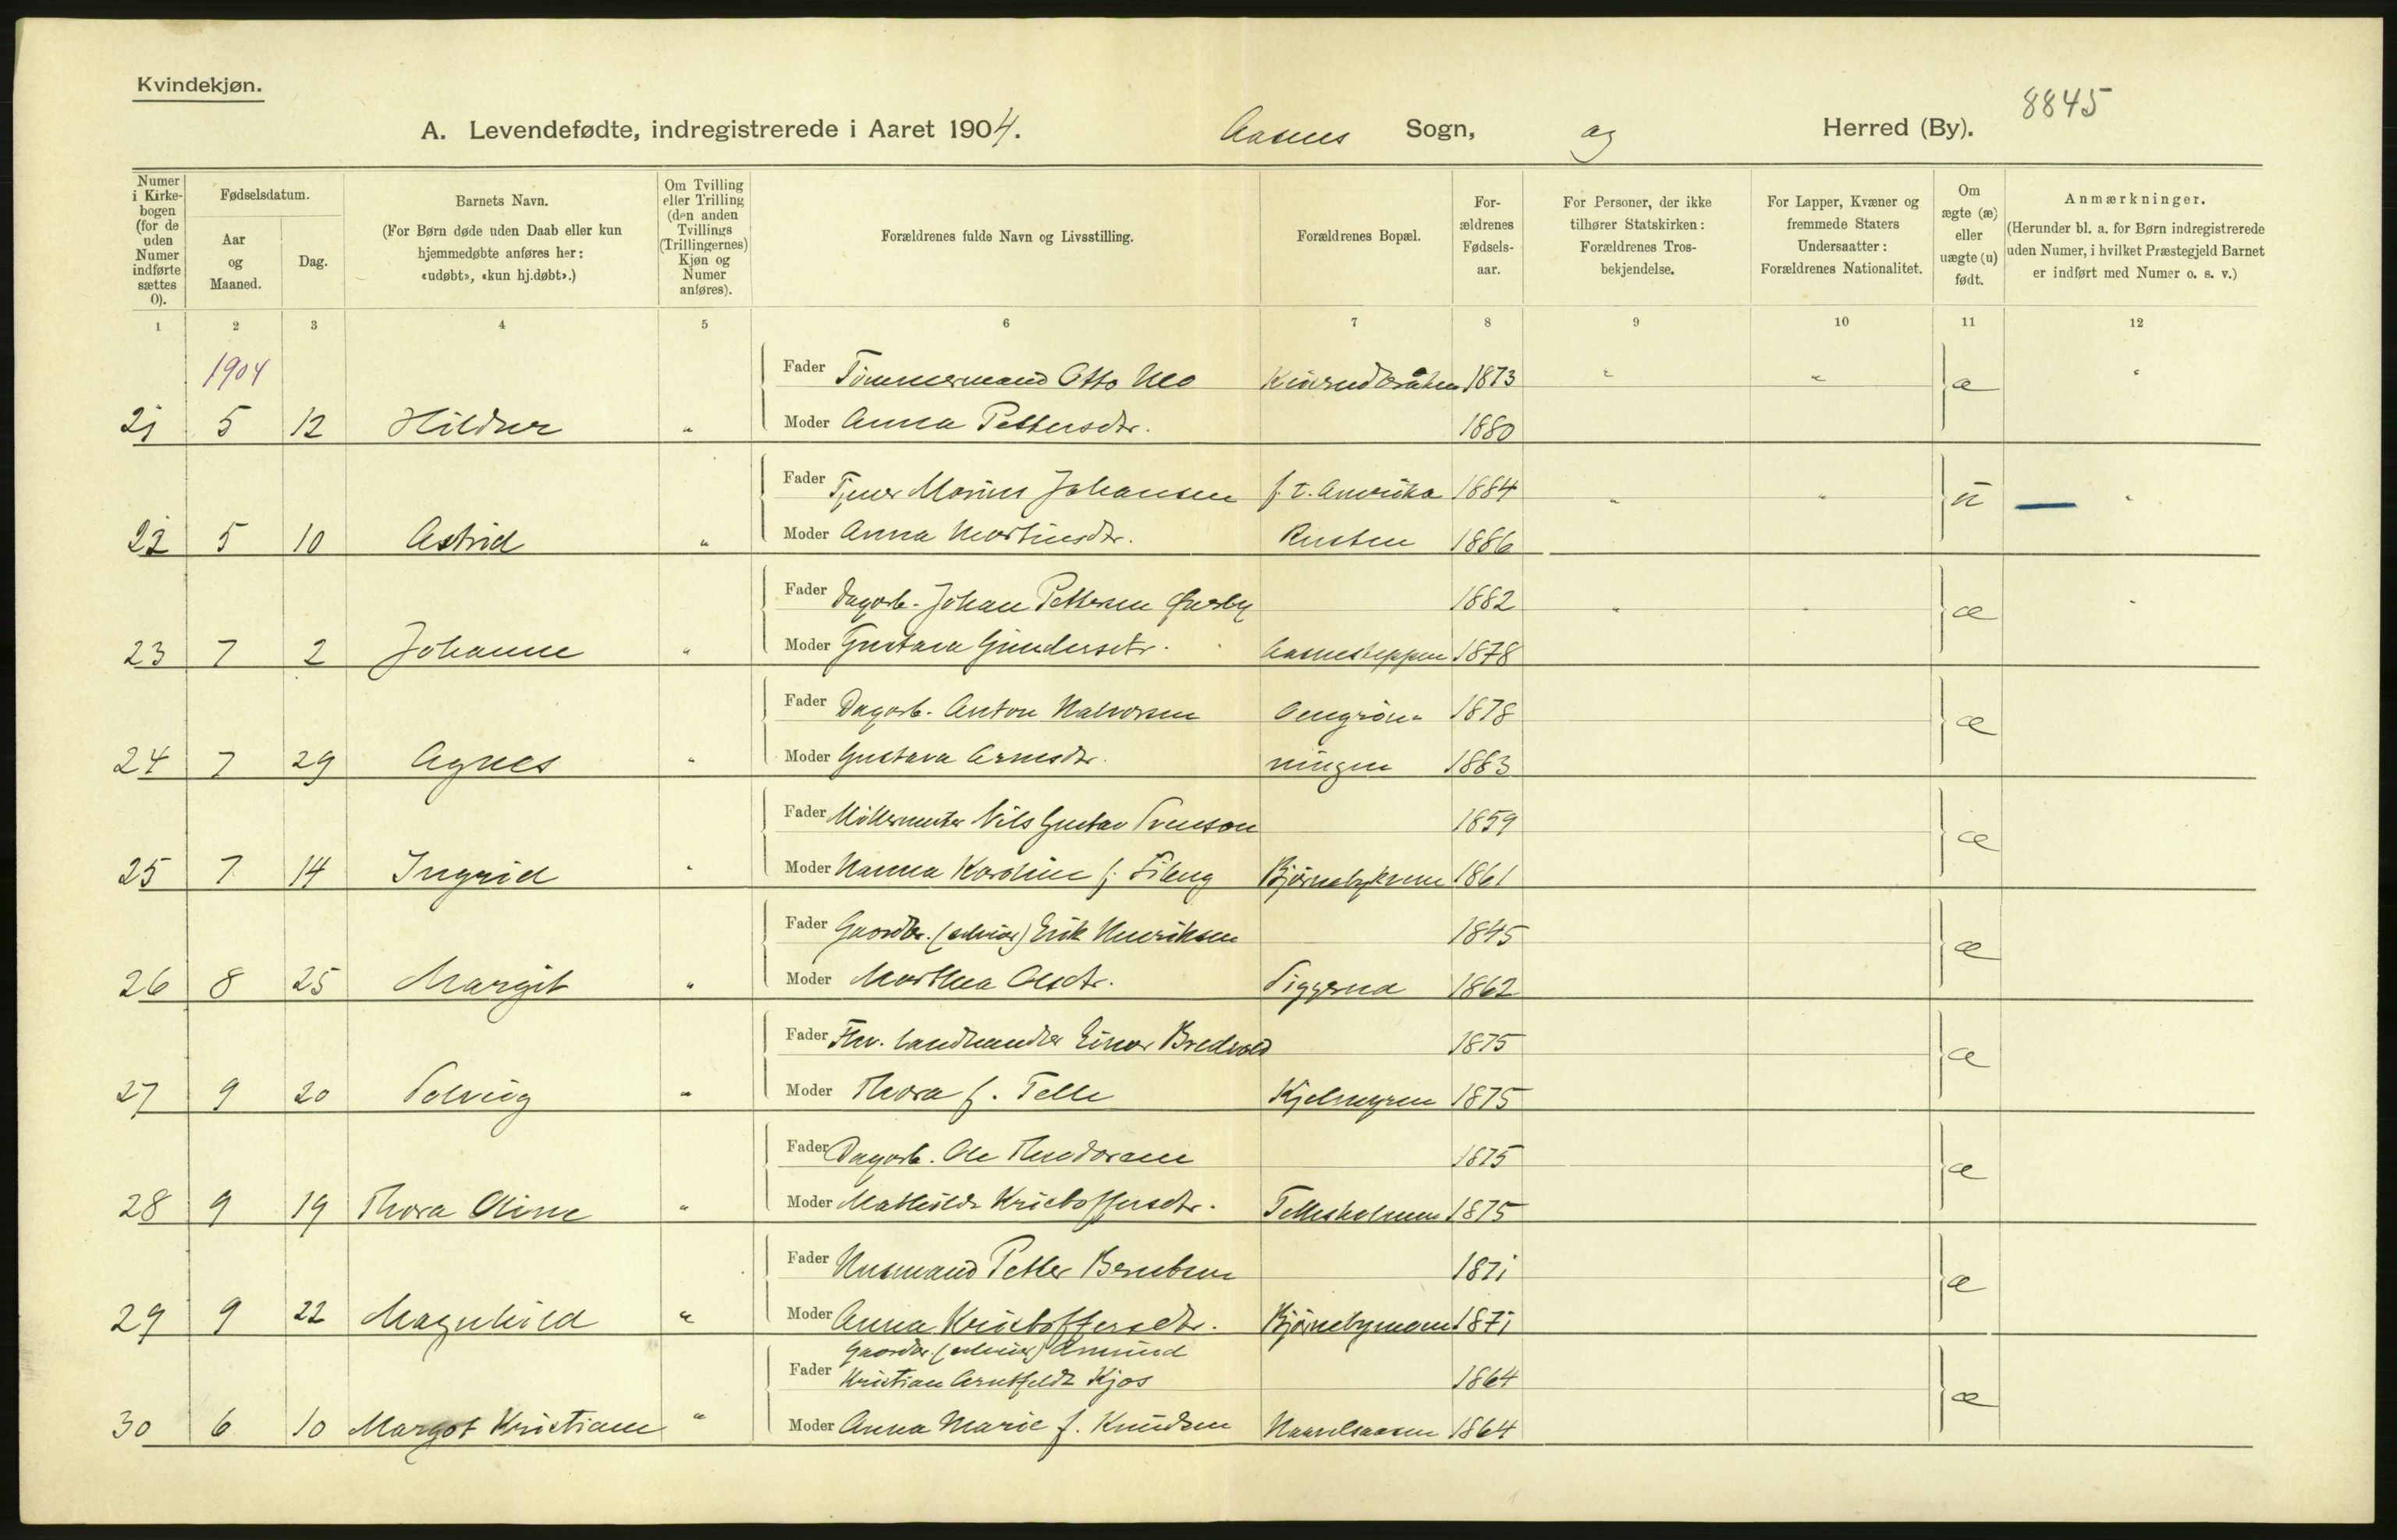 Kvindekjøn.
8845
A. Levendefødte, indregistrerede i Aaret 1904. Aasnes Sogn, og Herred (By).
Numer i Kirkebogen (for de uden Numer indførte sættes 0).
Fødselsdatum.
Aar og Maaned.
Dag.
Barnets Navn.
(For Børn døde uden Daab eller kun hjemmedøbte anføres her: «udøbt», «kun hj.døbt».)
Om Tvilling eller Trilling (den anden Tvillings (Trillingernes) Kjøn og Numer anføres).
Forældrenes fulde Navn og Livsstilling.
Forældrenes Bopæl.
Forældrenes Fødselsaar.
For Personer, der ikke tilhører Statskirken: Forældrenes Trosbekjendelse.
For Lapper, Kvæner og fremmede Staters Undersaatter: Forældrenes Nationalitet.
Om ægte (æ) eller uægte (u) født.
Anmærkninger.
(Herunder bl. a. for Børn indregistrerede uden Numer, i hvilket Præstegjeld Barnet er indført med Numer o. s. v.)
1 2 3 4 5 6 7 8 9 10 11 12
1904
Fader Tømmermand Otto 1873 " " æ "
21 5 12 Hildur " Moder Anna Pettersdtr. 1880
Fader Tjener Marius Johansen f. t. Amerika 1884 " " u — "
22 5 10 Astrid " Moder Anna Martinsdtr. Rusten 1886
Fader Dagarb. Johan Pettersen 1882 " " æ "
23 7 2 Johanne " Moder Gustava Gundersdtr. Aasneskeppen 1878
Fader Dagarb. Anton Halvorsen 1878 æ
24 7 29 Agnes " Moder Gustava Arnesdtr. 1883
Fader Møllermester Nils Gustav Svenson 1859 æ
25 7 14 Ingrid " Moder Hanna Karoline f. Bjørnebykvern 1861
Fader Gaardbr. (selveier) Erik Henriksen 1845 æ
26 8 25 Margit " Moder Marthea Olsdtr. Siggerud 1862
Fader Fhv. Landhandler Einar Bredvold 1875 æ
27 9 20 Solveig " Moder Thora f. Telle Kjelmyren 1875
Fader Dagarb. Ole Theodorsen 1875 æ
28 9 19 Thora Oline " Moder Mathilde Kristoffersdtr. Telleholmen 1875
Fader Husmand Petter Berntsen 1871 æ
29 9 22 Magnhild " Moder Anna Kristoffersdtr. Bjørnebymoen 1871
Gaardbr. (selveier) Amund
Fader Kristian Arntfeldt Kjos 1864 æ
30 6 10 Margot Kristiane " Moder Anna Marie f. Knudsen 1864